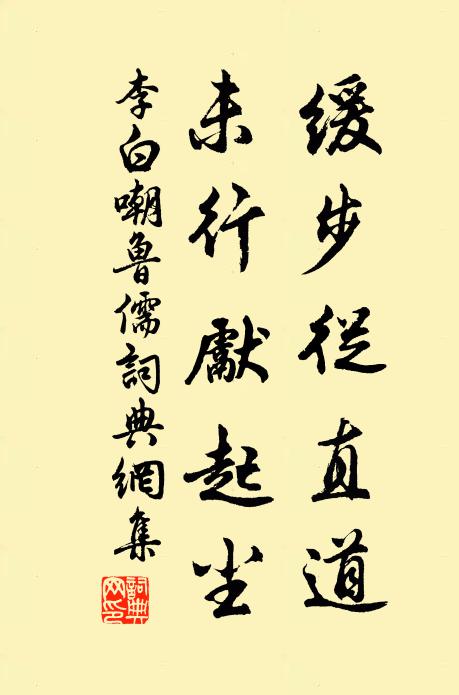 緩步從直道
未行獻起塵
李白嘲魯儒詞典網集
詞典
网印